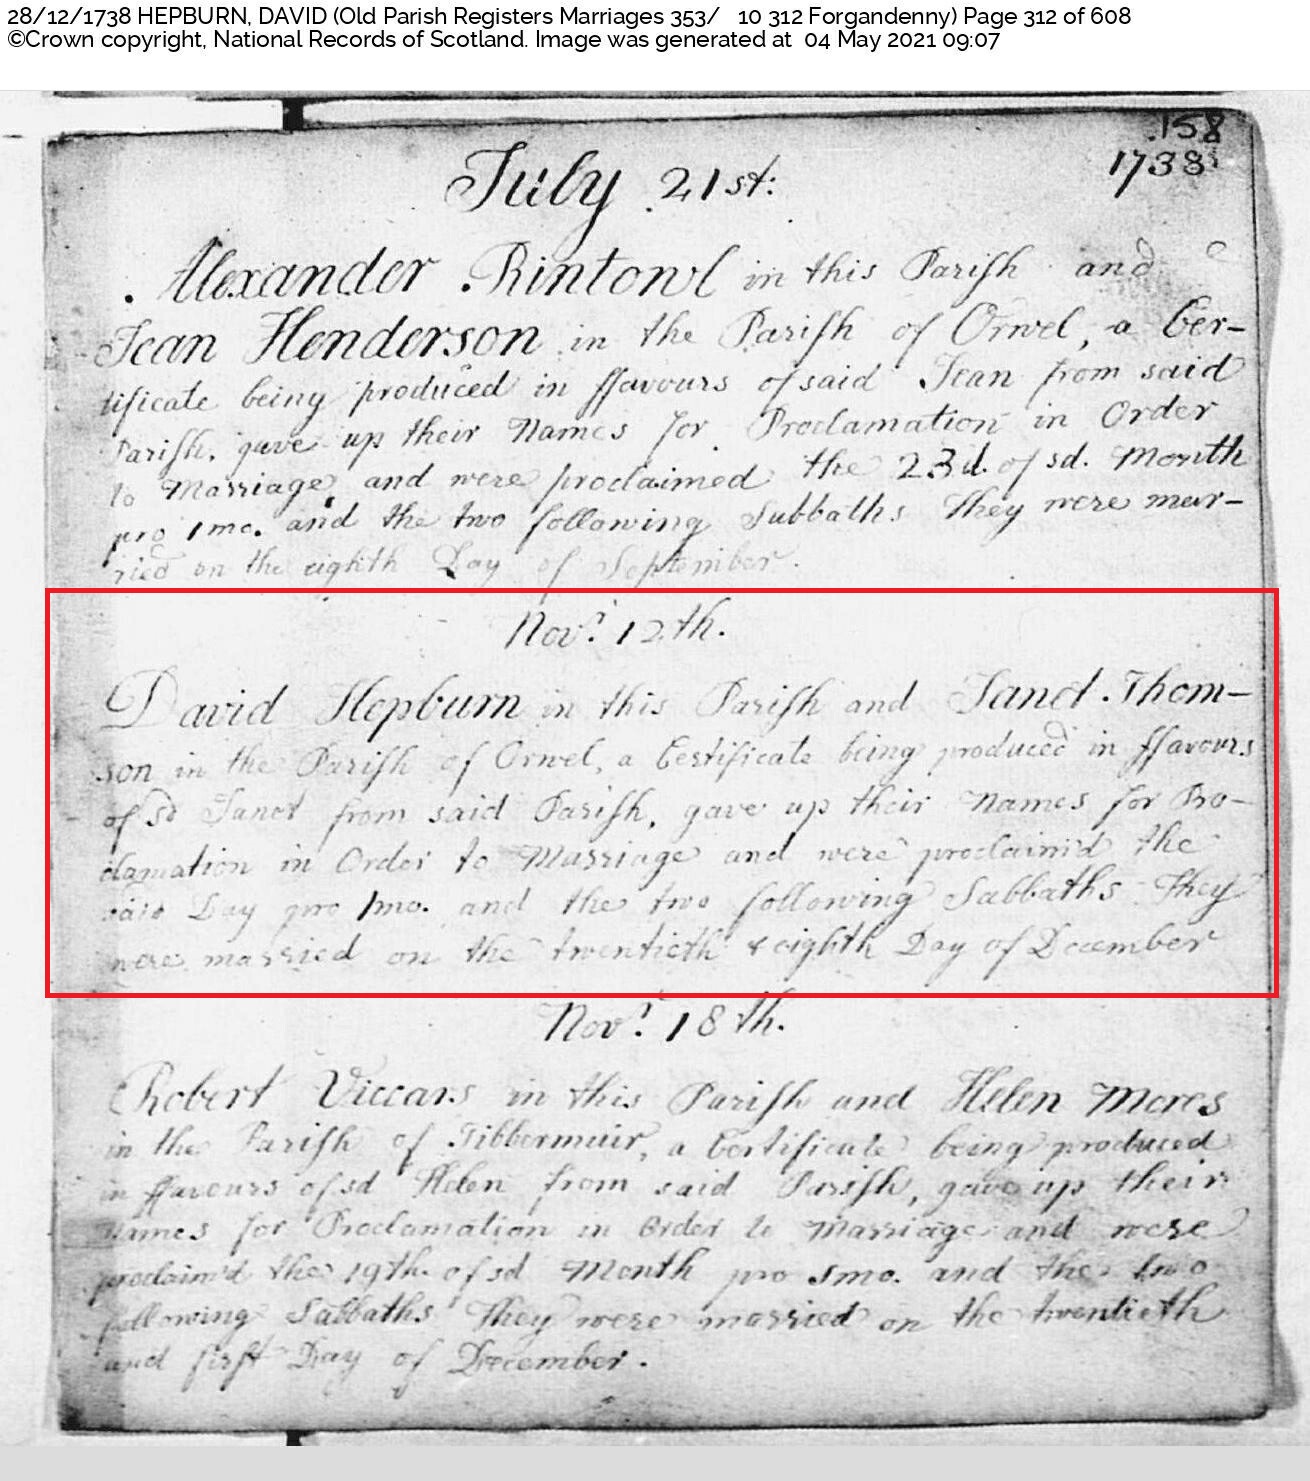 28/12/1738 HEPBURN, DAVID (Old Parish Registers Marriages 353/ 10 312 Forgandenny) Page 312 of 608
©Crown copyright, National Records of Scotland. Image was generated at 04 May 2021 09:07
158
1738
July 21st:
Alexander Rintowl in this Parish and
Jean Henderson in the Parish of Orwel, a Cer-
tificate being produced in ffavours of said Jean from said
Parish, gave up their Names for Proclamation in Order
to Marriage, and were proclaimed the 23d. of sd. Month
pro 1mo. and the two following Subbaths They were mar-
ried on the eighth Day of September.
Novr. 12th.
David Hepburn in this Parish and Janet Thom-
son in the Parish of Orwel, a Certificate being produced in ffavours
of Sd Janet from said Parish, gave up their Names for Pro-
clamation in Order to Marriage and were proclaim'd the
said Day pro 1mo. and the two following Sabbaths They
were married on the twentieth & eighth Day of December
Novr. 18th.
Robert Viccars in this Parish and Helen Mores
in the Parish of Tibbermuir, a Certificate being produced
in ffavours of sd Helen from said Parish, gave up their
Names for Proclamation in Order to Marriage and were
proclaim'd the 19th. of sd Month pro 1mo. and the two
following Sabbaths They were married on the twentieth
and first Day of December.